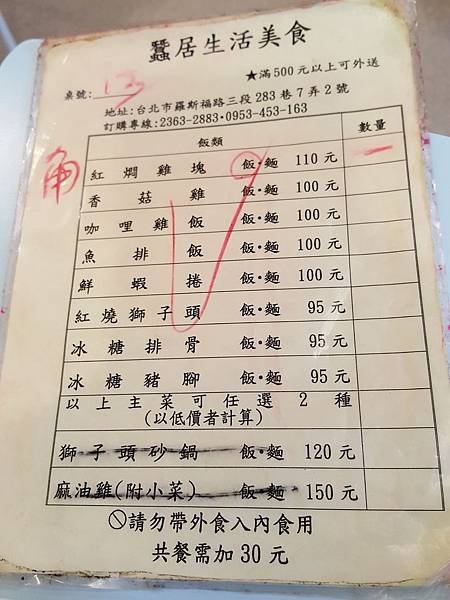 蠶居生活美食
★滿500元以上可外送
桌號: 13
地址:台北市羅斯福路三段283巷7弄2號
訂購專線:2363-2883·0953-453-163
飯類 數量
紅燜雞塊 飯·麵 110元
香菇雞 飯·麵 100元
咖哩雞飯 飯·麵 100元
魚排飯 飯·麵 100元
鮮蝦捲 飯·麵 100元
紅燒獅子頭 飯·麵 95元
冰糖排骨 飯·麵 95元
冰糖豬腳 飯·麵 95元
以上主菜可任選2種
(以低價者計算)
獅子頭砂鍋 飯·麵 120元
麻油雞(附小菜) 飯·麵 150元
請勿帶外食入內食用
共餐需加30元